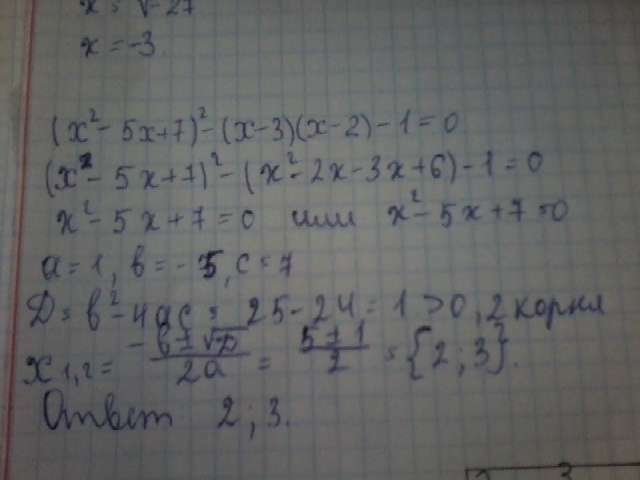 x = √-27
x = -3
(x² - 5x+7)² - (x-3)(x-2) - 1 = 0
(x² - 5x+7)² - (x² - 2x - 3x+6) - 1 = 0
x² - 5x+7 = 0 или x² - 5x+7=0
a = 1, b = -5, c = 7
D = b² - 4ac = 25 - 24 = 1 > 0, 2 корня
x₁,₂ = (-b ± √D)/2a = (5 ± 1)/2 = {2; 3}.
Ответ 2; 3.
3